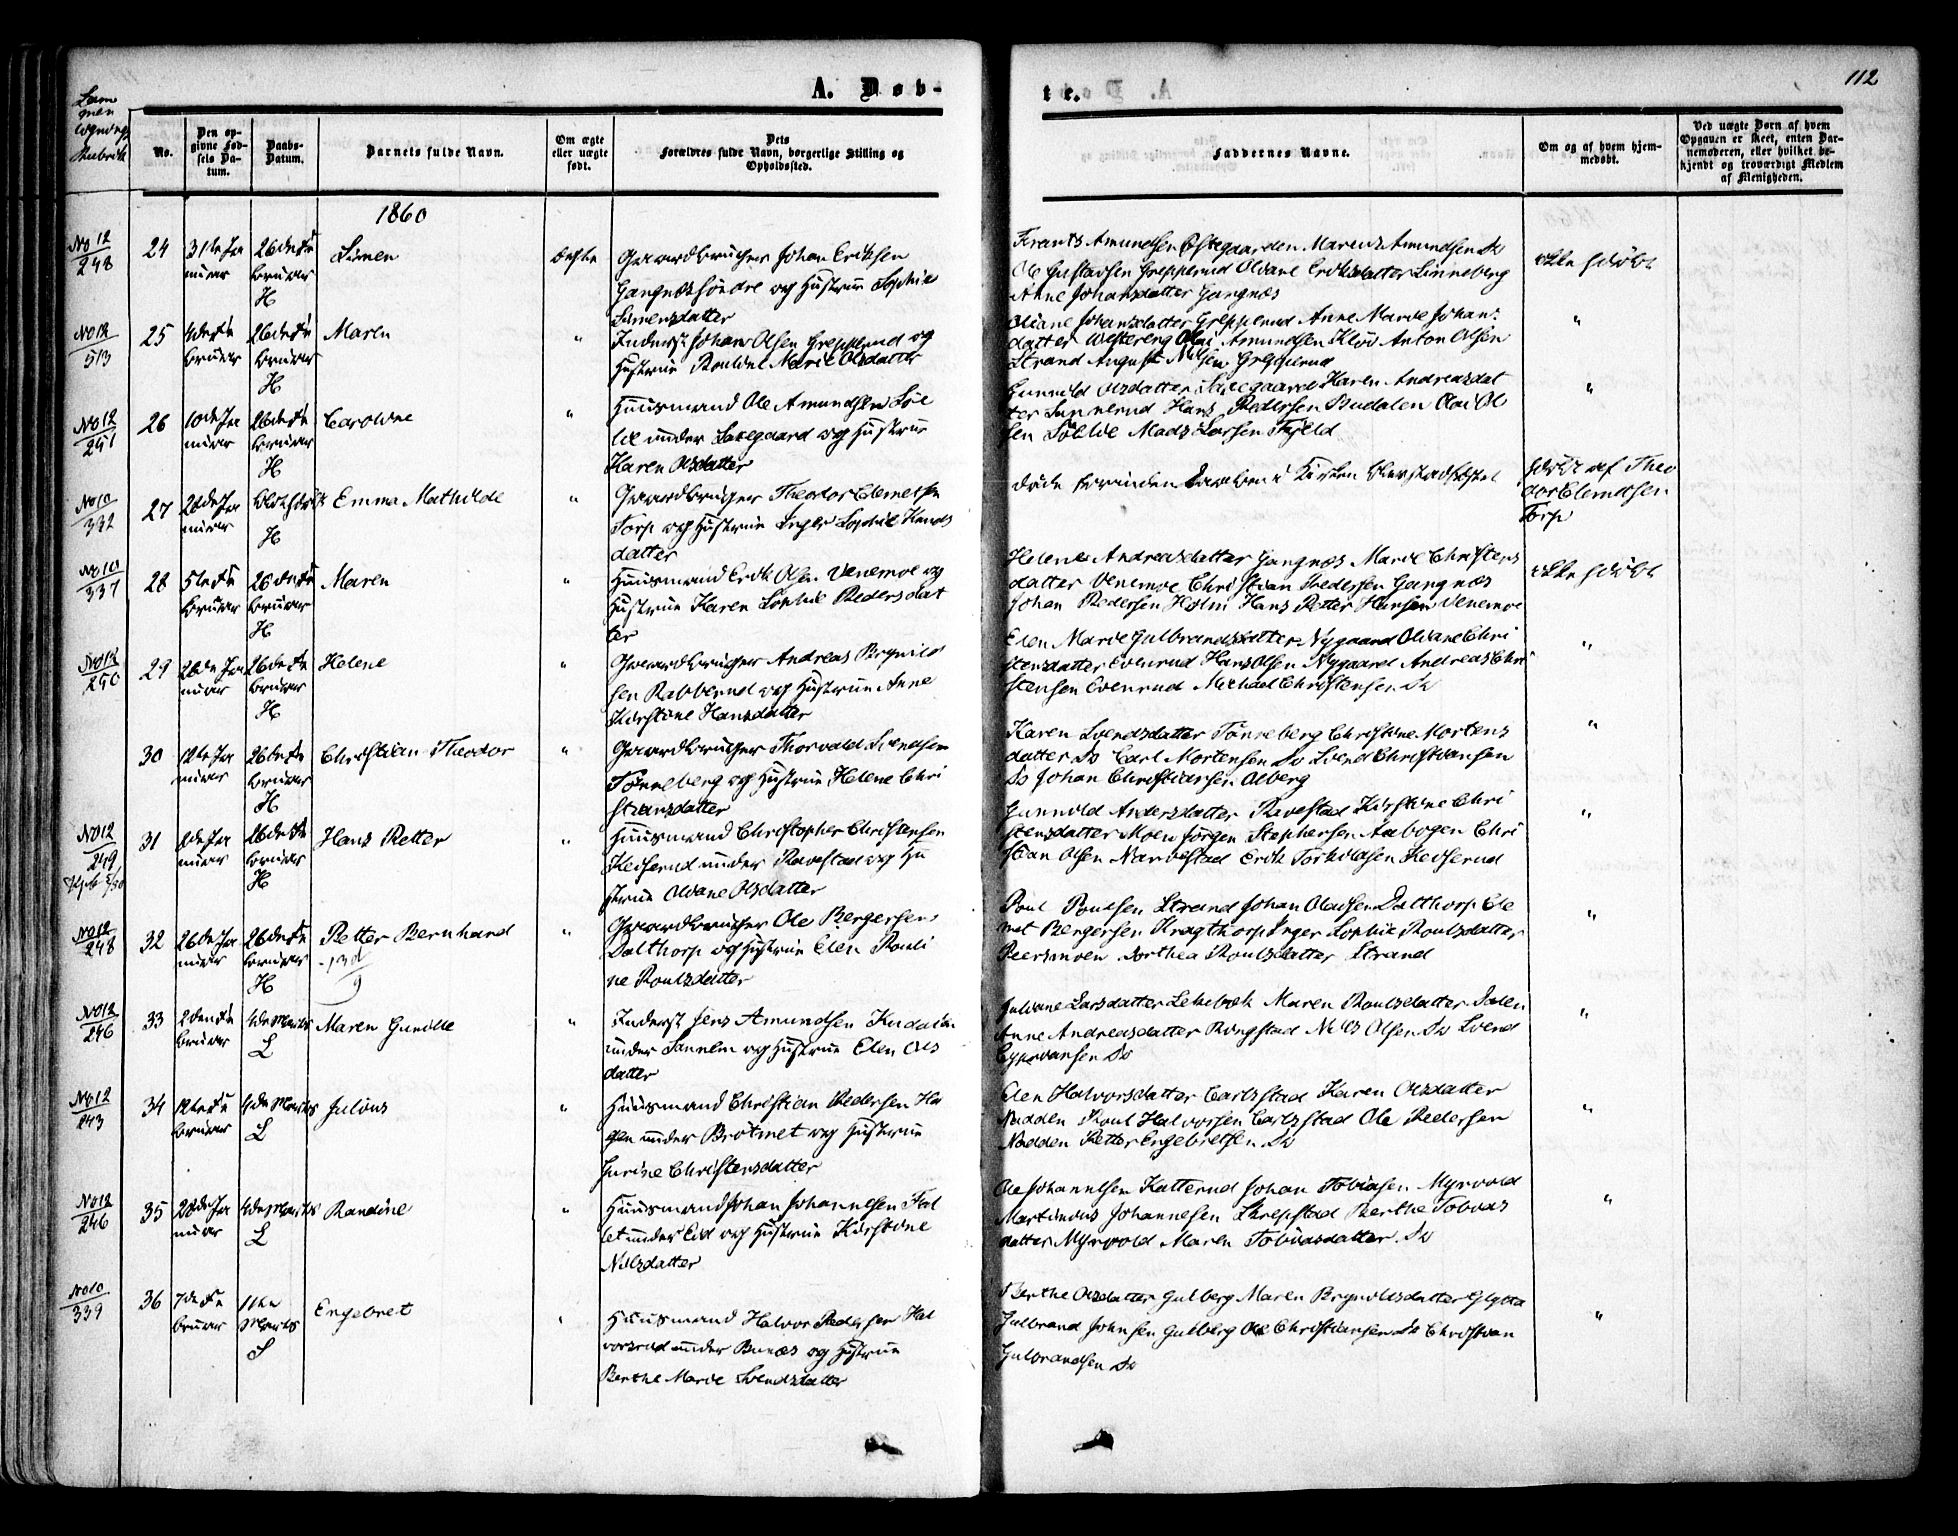 A. Døb-
te.
112
No.
Den op-
givne Fød-
sels Da-
tum.
Daabs-
Datum.
Barnets fulde Navn.
Om ægte
eller uægte
født.
Dets
Forældres fulde Navn, borgerlige Stilling og
Opholdssted.
Faddernes Navne.
Om og af hvem hjem-
medøbt.
Ved uægte Børn af hvem
Opgaven er skeet, enten Bar-
nemoderen, eller hvilket be-
kjendt og troværdigt Medlem
af Menigheden.
1860
No 12
248
24
31te Ja
nuar
26de Fe
bruar
H
Simen
Gaardbruger Johan Eriksen
Gangnæs søndre og Hustrue Sophie
Simensdatter
Ole Gustavsen Grepperud Oliane Eriksdatter Linneberg
Anne Johansdatter Gangnæs
ikke hdøbt
No 12
513
25
4de Fe
bruar
26de Fe
bruar
H
Maren
"
Inderst Johan Olsen Grepperud og
Hustrue Pouline Marie Olsdatter
Oliane Johansdatter Grepperud Anne Marie Johans
datter Westereng Olai Amundsen Anton Olsen
Strand August Nilsen Grepperud
"
No 12
251
26
10de Ja
nuar
26de Fe
bruar
H
Caroline
"
Huusmand Ole Amundsen Søl
lie under Saxegaard og Hustrue
Karen Olsdatter
Gunnild Olsdatter Saxegaard Karen Andreasdat
ter Sannerud Hans Pedersen Budalen Olai Ol
sen Søllie Mads Larsen
"
No 10
332
27
26de Ja
nuar
H
Emma Mathilde
"
Gaardbruger Theodor Clemetsen
Torp og Hustrue Inger Sophie Knuds
datter
døde forinden Daaben i Kirken
hdøbt af Theo
dor Clemetsen
Torp
No 10
337
28
5te Fe
bruar
26de Fe
bruar
H
Maren
"
Huusmand Erik Olsen Venemoe og
Hustrue Karen Sophie Pedersdat
ter
Helene Andreasdatter Gangnæs Marie Christens
datter Venemoe Christian Pedersen Gangnæs
Johan Pedersen Holm Hans Petter Hansen Venemoe
ikke hdøbt
No 12
250
29
26de Ja
nuar
26de Fe
bruar
H
Helene
"
Gaardbruger Andreas Brynild
sen Rabberud og Hustrue Anne
Kirstine Hansdatter
Elen Marie Gulbrandsdatter Nygaard Oliane Chri
stensdatter Evenrud Hans Olsen Nygaard Andreas Chri
stensen Evenrud Michael Christensen Do
"
30
12te Ja
nuar
26de Fe
bruar
H
Christian Theodor
"
Gaardbruger Thorvald Svendsen
Tønneberg og Hustrue Helene Chri
stiansdatter
Karen Svendsdatter Tønneberg Christine Mortens
datter Do Carl Mortensen Do Svend Christiansen
Do Johan Christiansen Olberg
"
No 12
249
31
nuar
26de Fe
bruar
H
Hans Petter
"
Huusmand Christopher Christensen
Keiserud under Ravestad og Hu
strue Oliane Olsdatter
Gunnild Andersdatter Ravestad Kirstine Chri
stensdatter Moen Jørgen Stephensen Aabogen Chri
stian Olsen Narvestad Erik Torkildsen Keiserud
"
No 12
248
32
26de Ja
nuar
26de Fe
bruar
H
Petter Bernhard
"
Gaardbruger Ole Bergersen
Dalthorp og Hustrue Elen Pouli
ne Poulsdatter
Poul Poulsen Strand Johan Olausen Dalthorp Cle
met Bergersen Kragthorp Inger Sophie Poulsdatter
Peersmoen Dorthea Poulsdatter Strand
"
No 12
246
33
2den Fe
bruar
4de Marts
L
Maren Gunille
"
Inderst Jens Amundsen
under og Hustrue Elen Ols
datter
Juliane Larsdatter Maren Poulsdatter
Anne Andreasdatter Ringstad Nils Olsen Do Svend
Do
"
No 12
243
34
12te Fe
bruar
4de Marts
L
Julius
"
Huusmand Christian Pedersen Ha
gen under Brotnet og Hustrue
Jurine Christensdatter
Elen Halvorsdatter Carlsstad Karen Olsdatter
Nadden Poul Halvorsen Carlsstad Ole Pedersen
Nadden Petter Engebretsen Do
"
No 12
246
35
28de Ja
nuar
4de Marts
L
Randine
"
Huusmand Johan Johannesen Fal
let under Eid og Hustrue Kirstine
Nilsdatter
Ole Johannesen Katterud Johan Tobiasen Myrvold
Martinius Johannesen Skrepstad Berthe Tobias
datter Myrvold Maren Tobiasdatter Do
"
No 10
339
36
7de Fe
bruar
11te
Marts
S
Engebret
"
Huusmand Halvor Pedersen Hal
vorsrud under Bunæs og Hustrue
Berthe Marie Svendsdatter
Berthe Olsdatter Gulberg Maren Brynildsdatter
Gulbrand Johnsen Gulberg Ole Christiansen Do Christian
Gulbrandsen Do
"